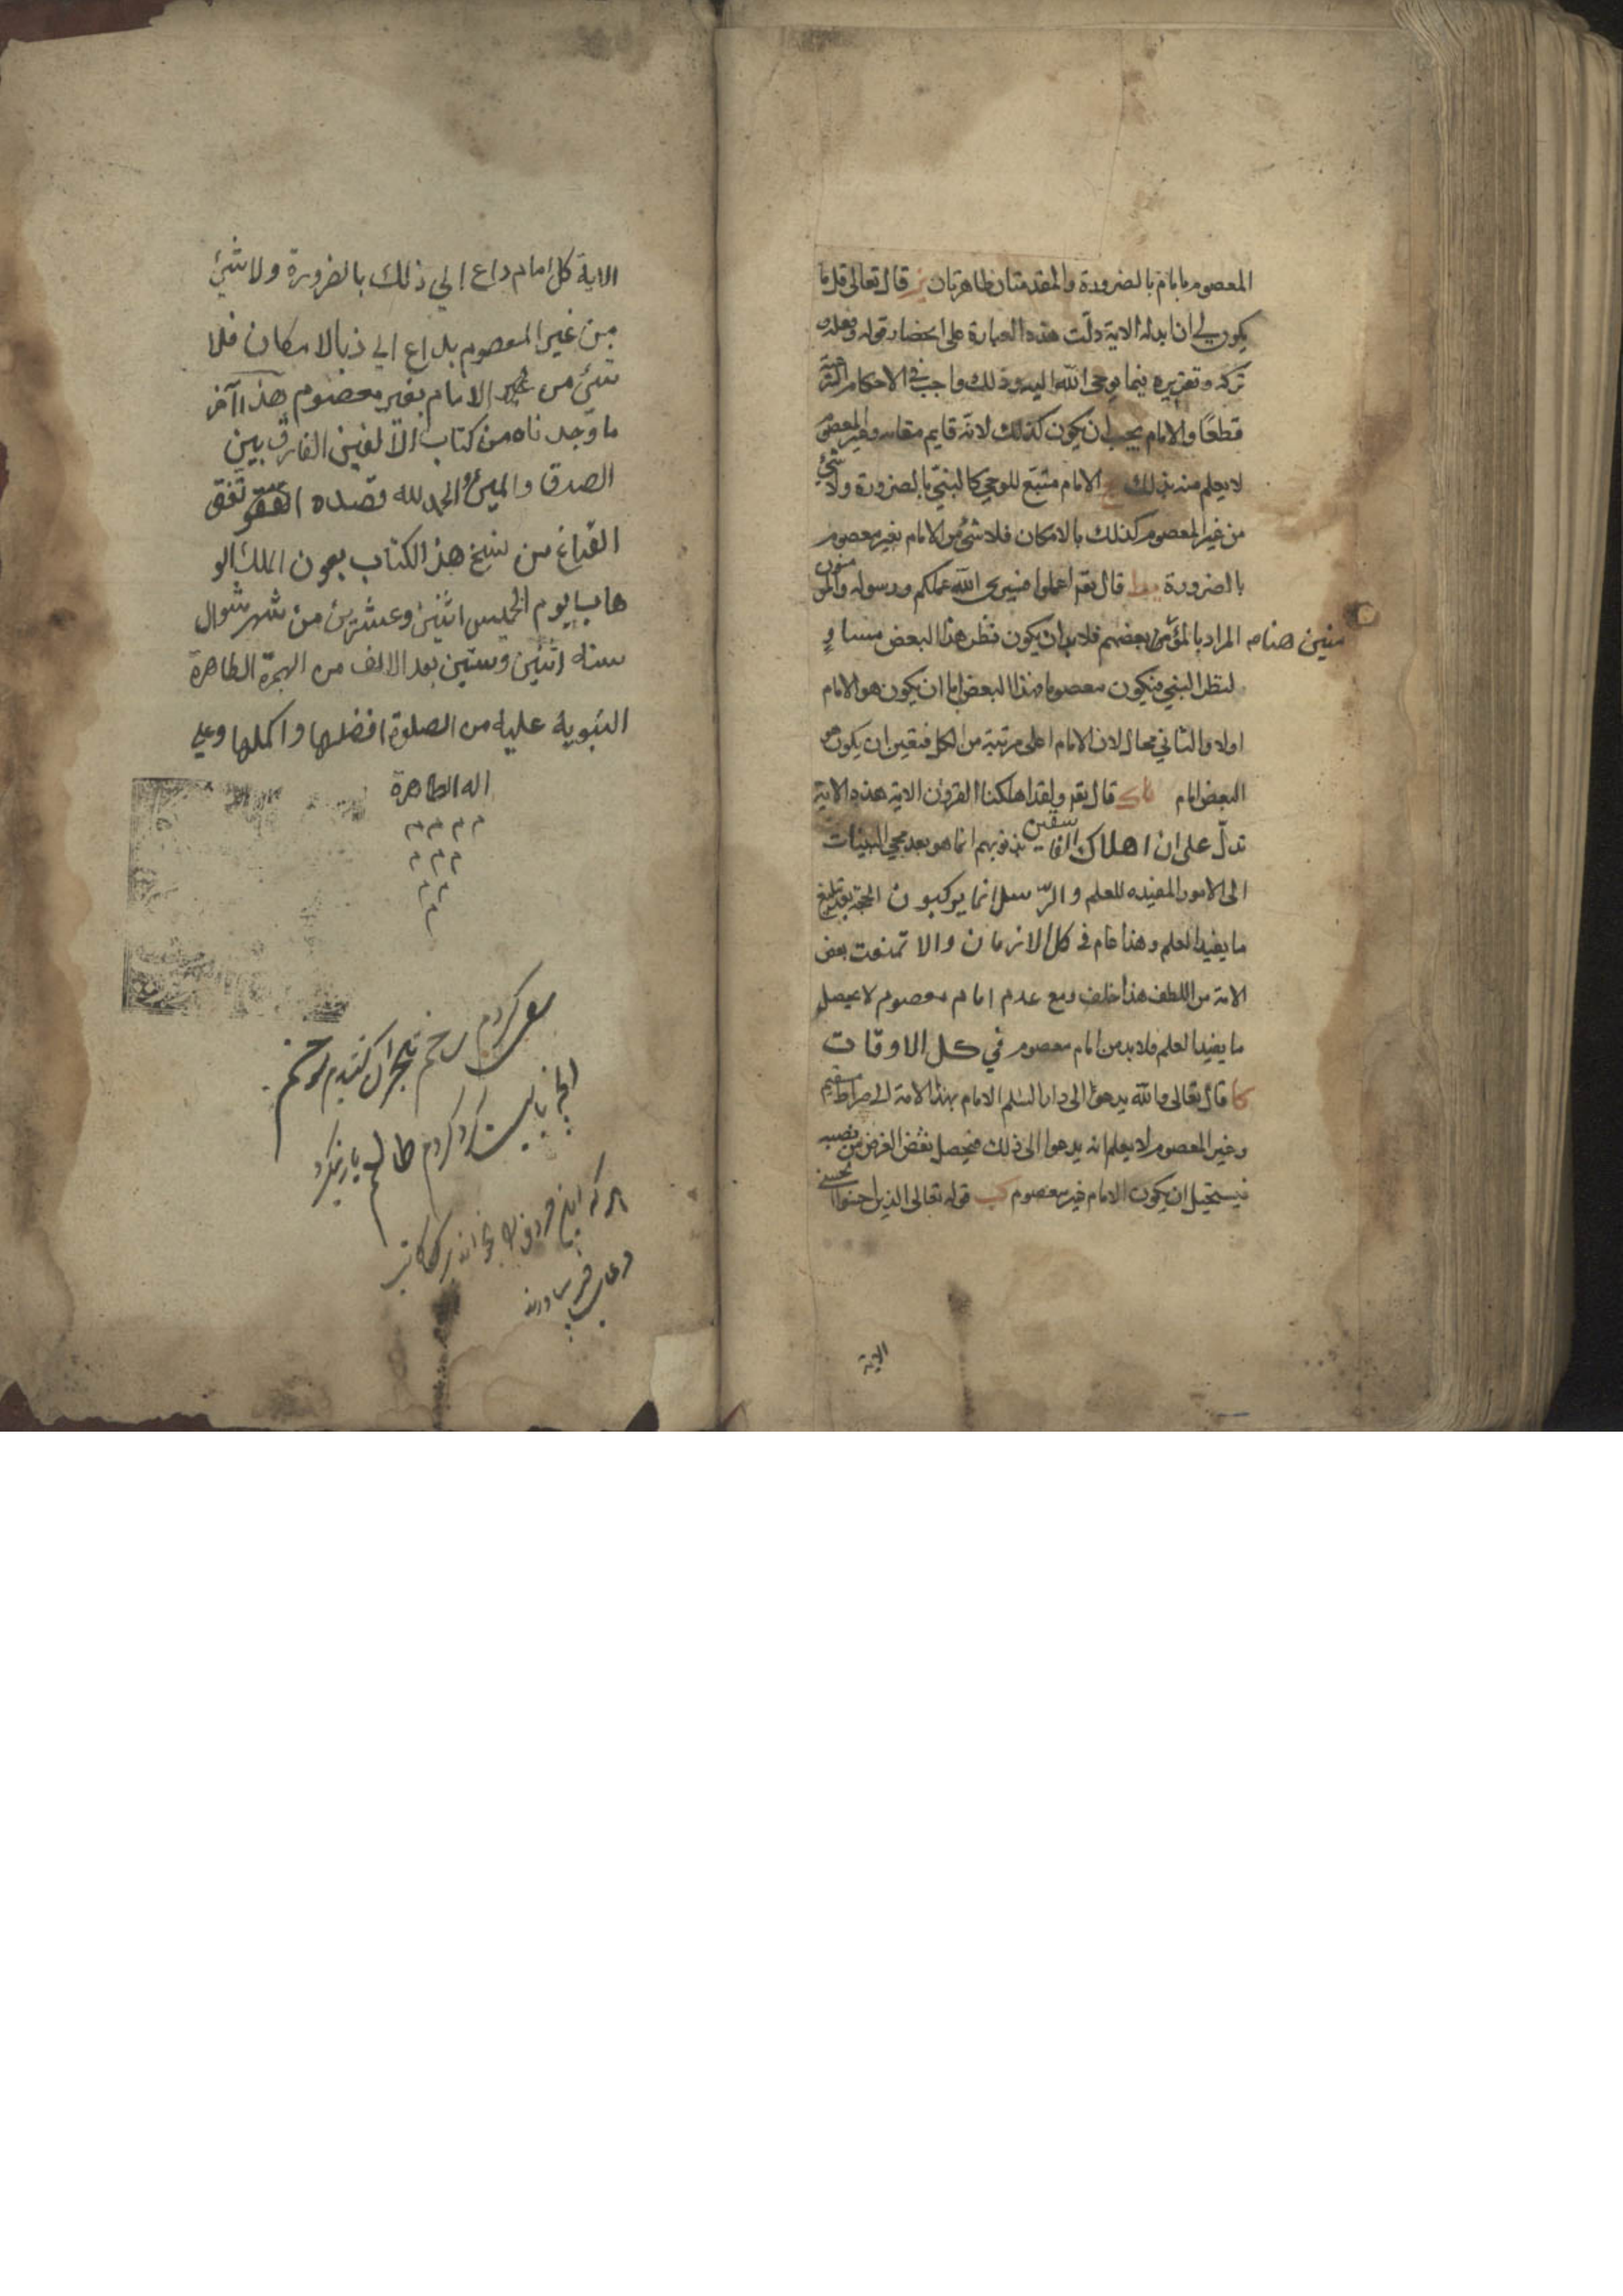 المعصوم بامام بالضرورة والمقدمتان ظاهرتان يز قال تعالى قل ما
يكون لي ان ابدله الاية دلّت هذه العبارة على انحصار قوله وفعله و
تركه وتقريره فيما يوحى الله اليه وذلك واجب في الاحكام الشرعية
قطعًا والامام يجب ان يكون كذلك لانه قايم مقامه وغير المعصوم
لا يعلم منه ذلك الامام متبع للوحي كالنبي بالضرورة ولا شئ
من غير المعصوم كذلك بالامكان فلا شئ من الامام بغير معصوم
بالضرورة يط قال تعم اعملوا فسيرى الله عملكم ورسوله والمو منون
منين هنا م المراد بالمؤمن بعضهم فلا بد ان يكون نظر هذا البعض مساوٍ
لنظر النبي فيكون معصوما فهذا البعض اما ان يكون هو الامام
اولا والثاني محال لان الامام اعلى مرتبة من الكل فتعين ان يكون هو
البعض امام قال تعم ولقد اهلكنا القرون الاية هذه الاية
تدلّ على ان اهلاك الفاسقين بذنوبهم انما هو بعد مجي البينات
الى الامور المفيده للعلم والرّسل انما يوكبون الحجة بعد تبليغ
ما يفيد العلم وهذا عام في كل الازمان والا تمنعت بعض
الامة من اللطف هذا خلف ومع عدم امام معصوم لا يحصل
ما يفيد العلم فلا بد من امام معصوم في كل الاوقات
كا قال تعالى والله يدعوا الى دار السلم الامام بهذا الامة الى صراط مستقيم
وغير المعصوم لا يعلم انه يدعوا الى ذلك فيحصل نقض الغرض من نصبه
فيستحيل ان يكون الامام غير معصوم كب قوله تعالى الذين احسنوا الحسنى
الاية
الاية كل امام داع الي ذلك بالضرورة ولا شئ
من غير المعصوم بداع الي ذ بالامكان فلا
شئ من غير الامام بغير معصوم هذا آخر
ما وجدناه من كتاب الالفين الفارق بين
الصدق والمين الحمد لله وحده اتفق
الفراغ من نسخ هذ الكتاب بعون الملك الو
هاب يوم الخميس اثنين وعشرين من شهر شوال
سنه اثنين وستين بعد الالف من الهجرة الطاهرة
النبوية عليه من الصلوة افضلها واكملها وعلي
اله الطاهرة
م م م م
م م م
م م
م
سعي كردم
انچه بايست كرد كردم طالعم يارى نكرد
هر كه اين